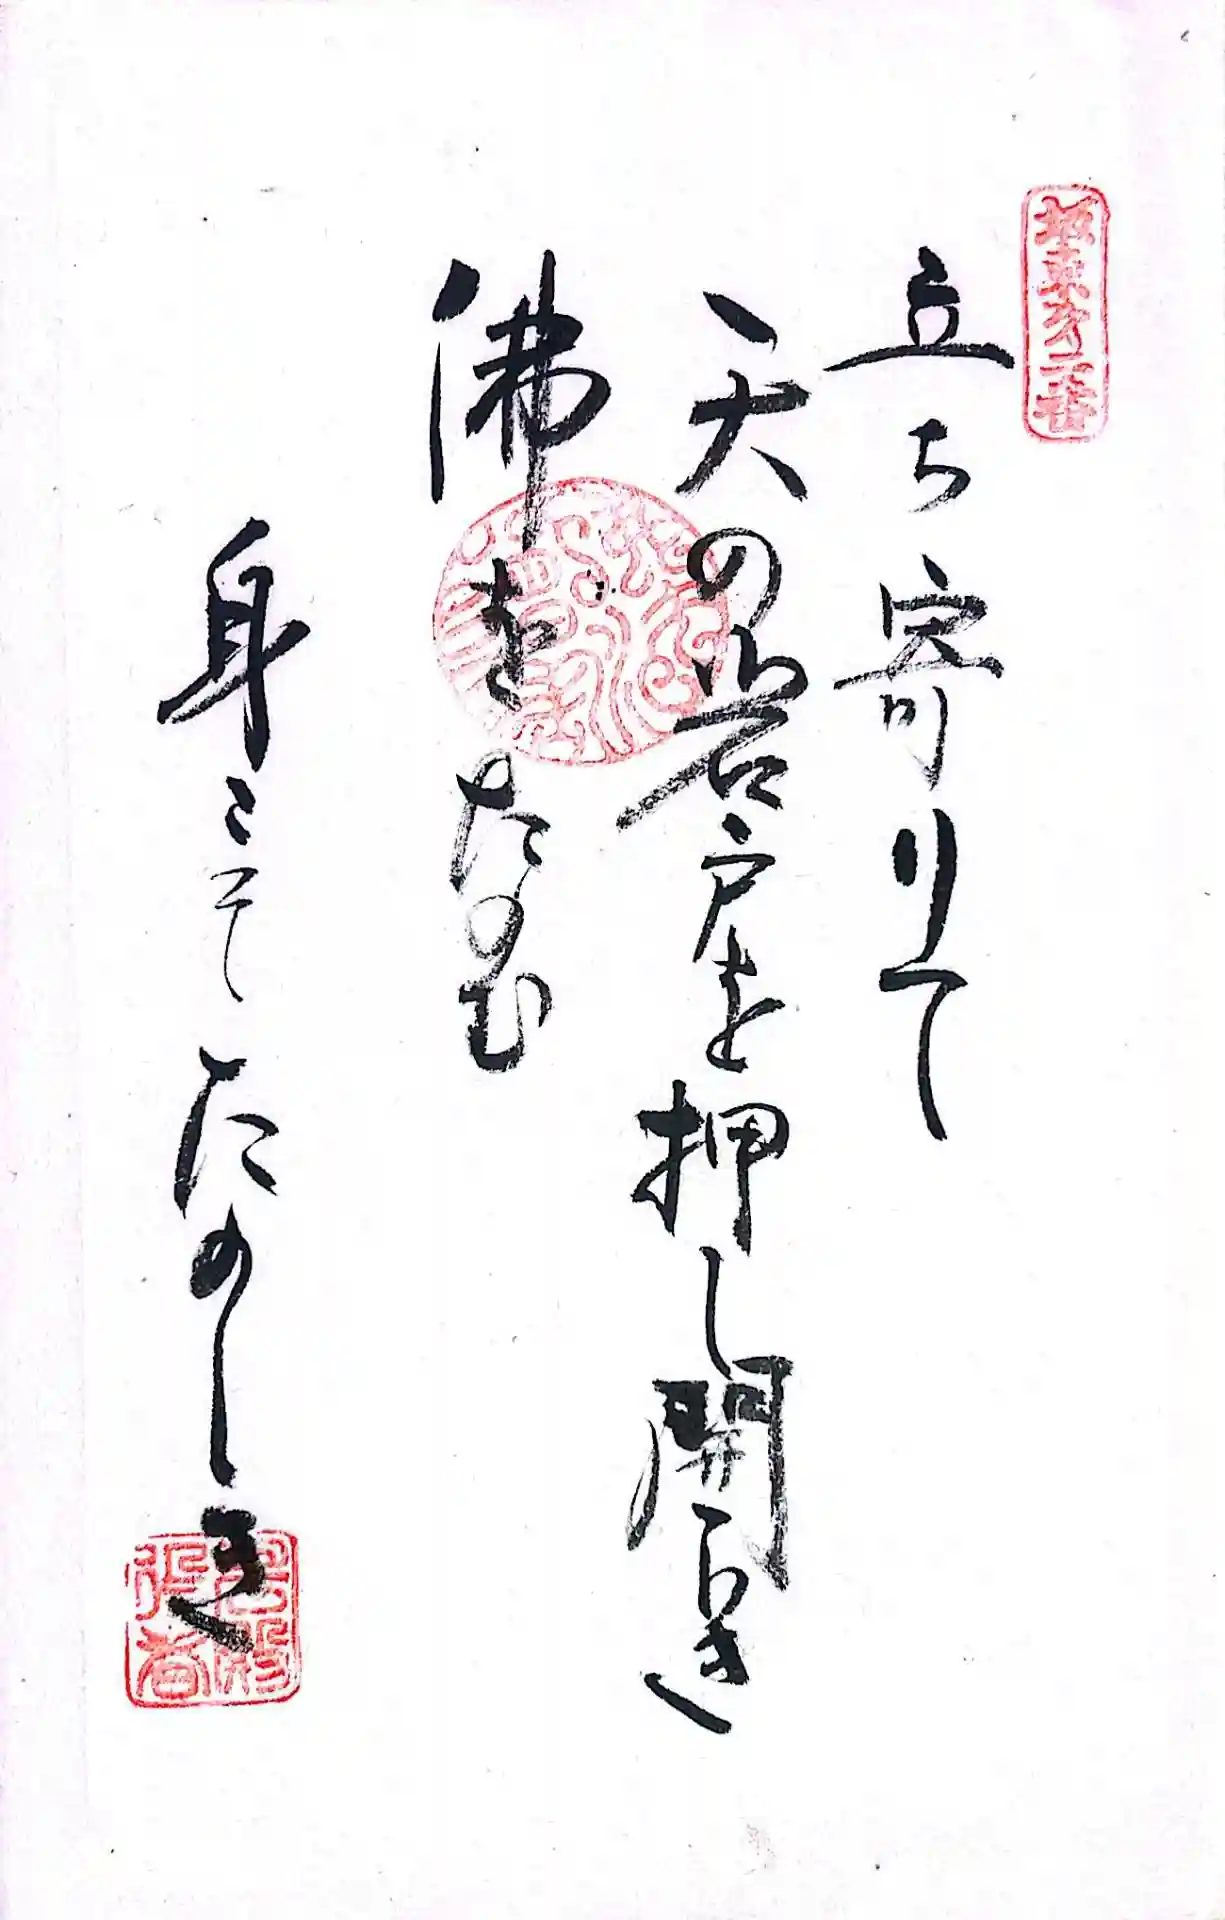 坂東第二番
立ち寄りて
天の岩戸を押し開らき
佛をたのむ
身こそたのしき